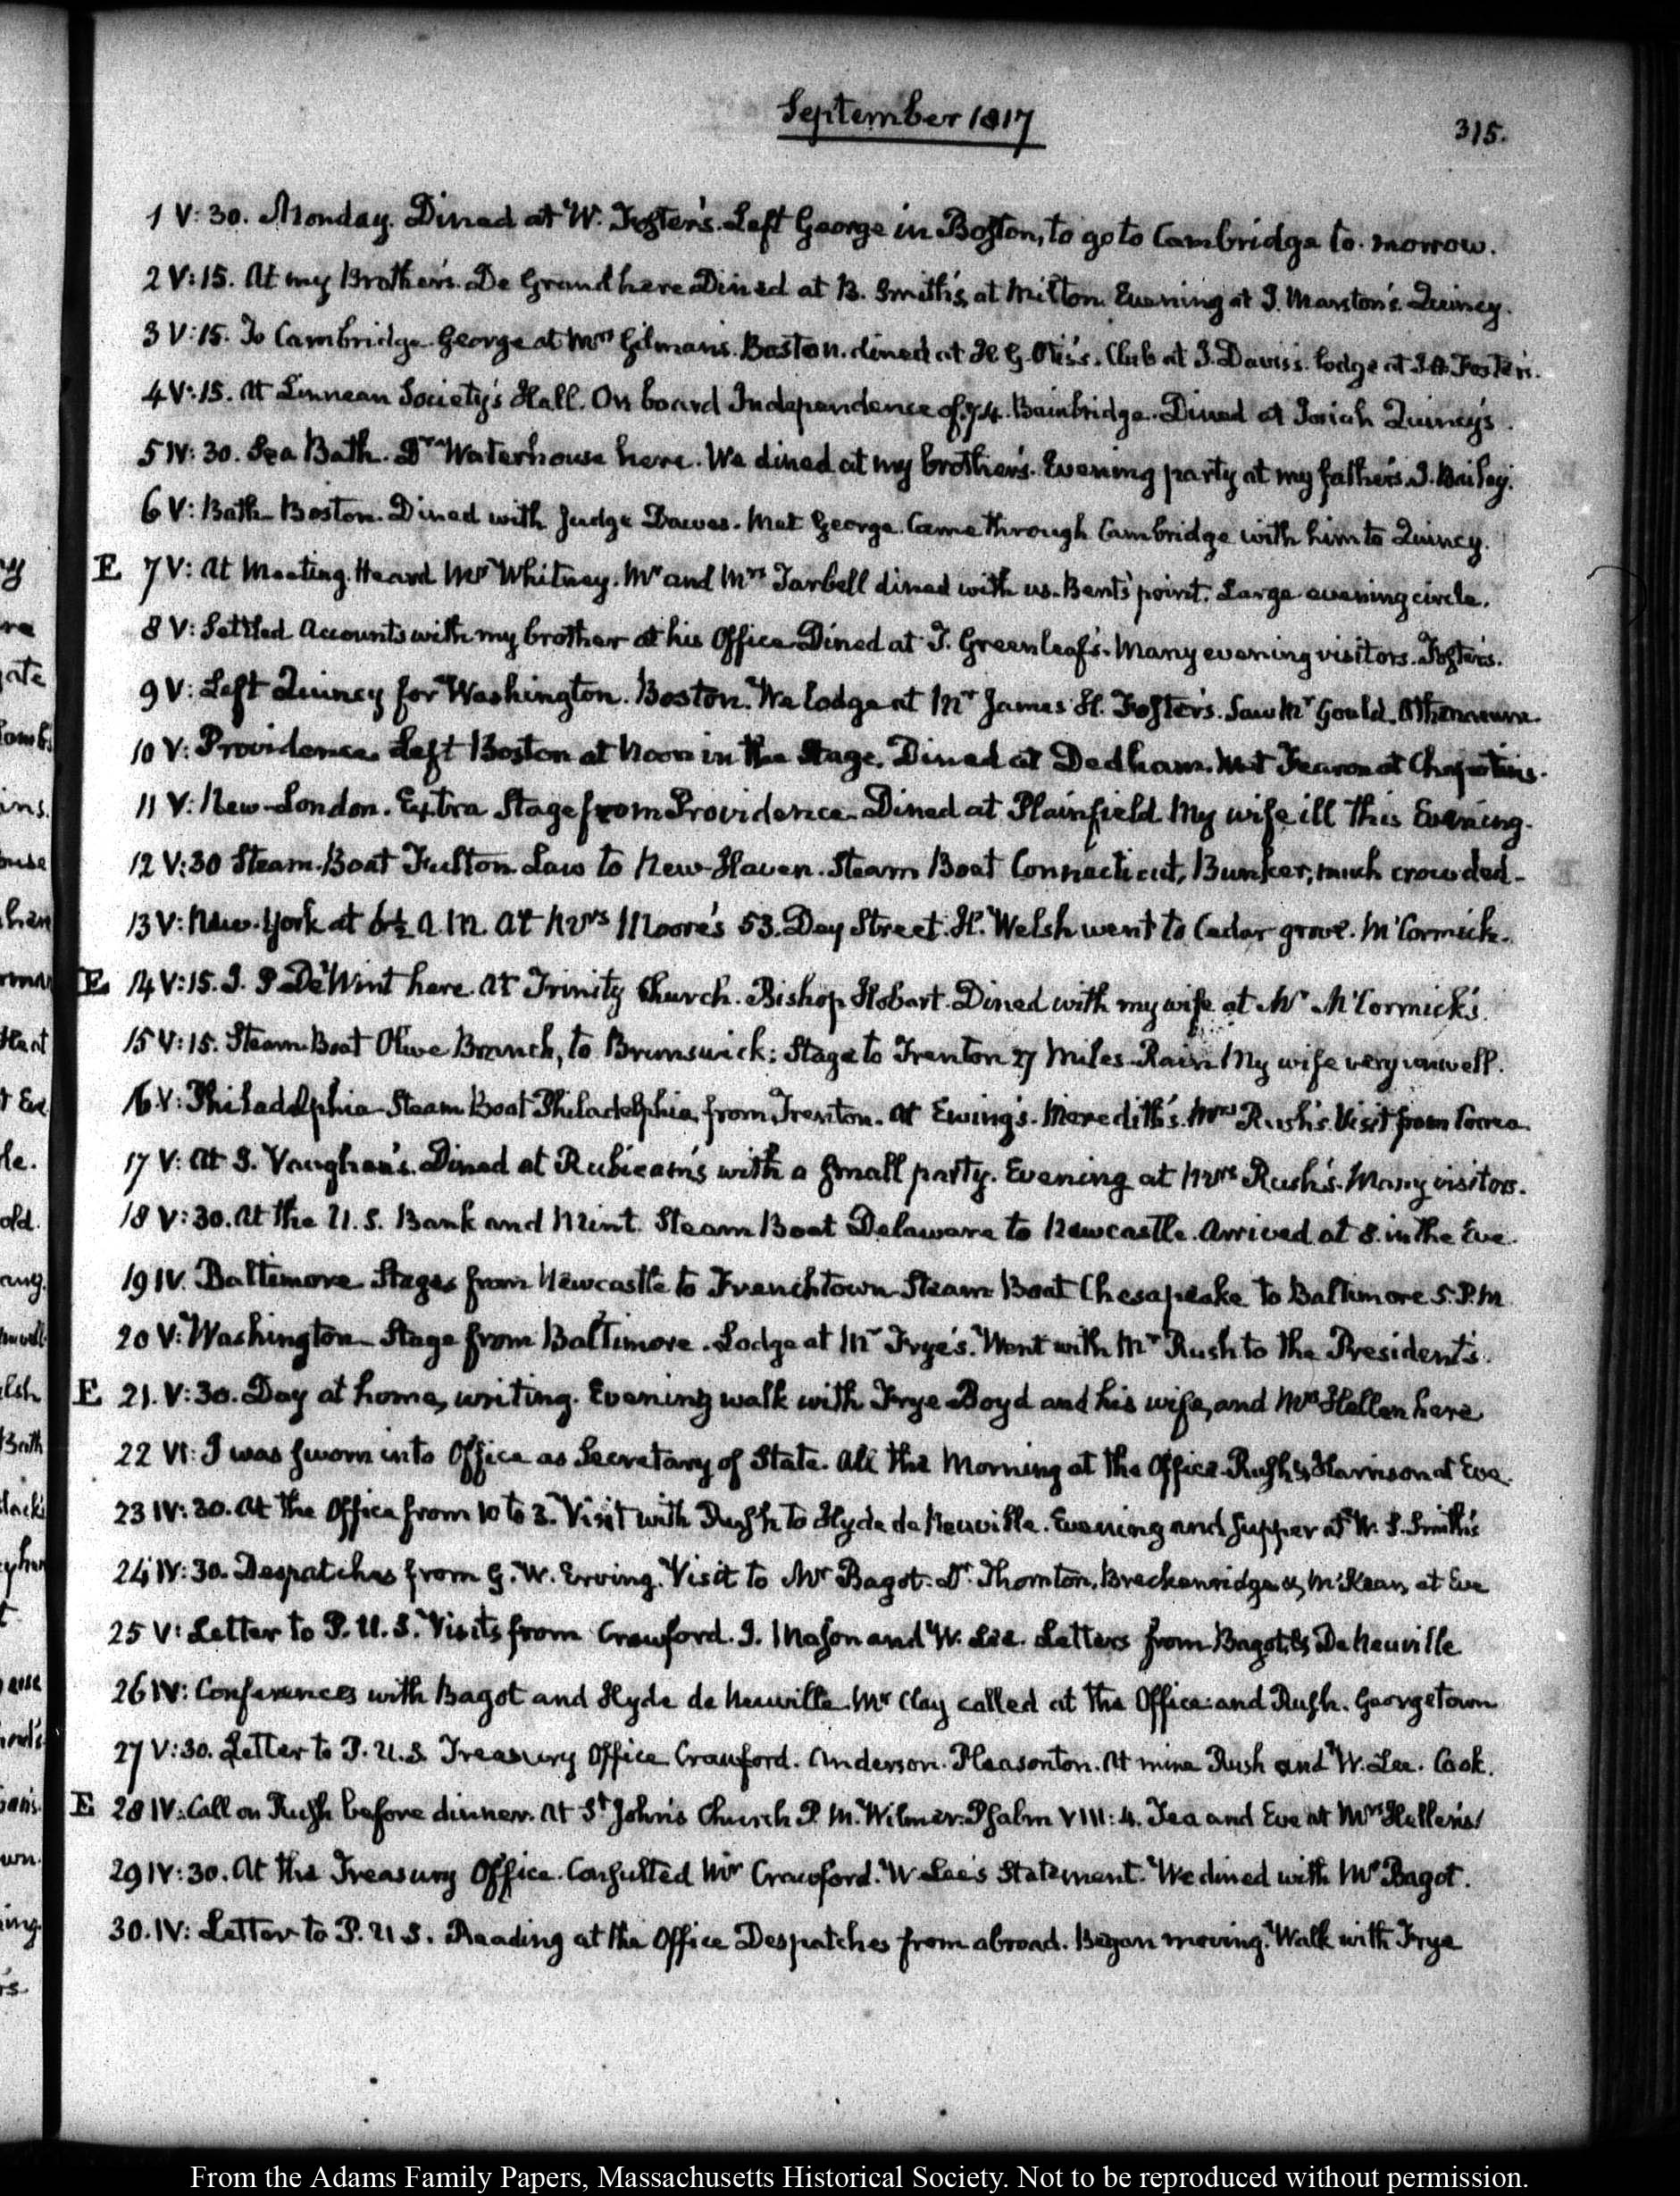 September 1817
315.
1 V: 30. Monday. Dined at W. Foster's. Left George in Boston, to go to Cambridge to-morrow.
2 V: 15. At my Brother's. De Grand here Dined at B. Smith's, at Milton. Evening at J. Marston's. Quincy.
3 V: 15. To Cambridge. George at Mrs Gilman's. Boston. dined at H. G. Otis's. Club at J. Davis's. lodge at J. H. Foster's.
4 V: 15. At Linnean Society's Hall. On board Independence of 74. Bainbridge. Dined at Josiah Quincy's.
5 IV: 30. Sea Bath. Dr Waterhouse here. We dined at my brother's. Evening party at my father's. J. Bailey.
6 V: Bath. Boston. Dined with Judge Dawes. Met George. Came through Cambridge with him to Quincy.
E 7 V: At Meeting. Heard Mr Whitney. Mr and Mrs Tarbell dined with us. Bent's point. Large evening circle.
8 V: Settled Accounts with my brother at his Office. Dined at T. Greenleaf's. Many evening visitors. Foster's.
9 V: Left Quincy for Washington. Boston. We lodge at Mr James H. Foster's. Saw Mr Gould. Athenaeum.
10 V: Providence. Left Boston at Noon in the Stage. Dined at Dedham. Met Fearon at
11 V: New-London. Extra Stage from Providence. Dined at Plainfield. My wife ill this Evening.
12 V: 30 Steam-Boat Fulton Law to New-Haven. Steam Boat Connecticut, Bunker, much crowded.
13 V: New-York at 6½ A.M. At Mrs Moore's 53. Dey Street. H. Welsh went to Cedar grove. McCormick.
E 14 V: 15. J. P. De Wint here. At Trinity Church. Bishop Hobart. Dined with my wife at Mr McCormick's.
15 V: 15. Steam-Boat Olive Branch, to Brunswick: Stage to Trenton 27 Miles. Rain. My wife very unwell.
16 V: Philadelphia. Steam Boat Philadelphia, from Trenton. At Ewing's. Meredith's. Mrs Rush's. Visit from Correa.
17 V: At J. Vaughan's. Dined at Rubicam's with a small party. Evening at Mrs Rush's. Many visitors.
18 V: 30. At the U.S. Bank and Mint. Steam Boat Delaware to Newcastle. Arrived at 8. in the Eve.
19 IV. Baltimore. Stages from Newcastle to Frenchtown. Steam Boat Chesapeake to Baltimore 5. P.M.
20 V: Washington. Stage from Baltimore. Lodge at Mr Frye's. Went with Mr Rush to the President's.
E 21. V: 30. Day at home, writing. Evening walk with Frye. Boyd and his wife, and Mrs Hellen here.
22 VI: I was sworn into Office as Secretary of State. All the Morning at the Office. Rush & Harrison at Eve.
23 IV: 30. At the Office from 10 to 3. Visit with Rush to Hyde de Neuville. Evening and supper at W. S. Smith's
24 IV: 30. Despatches from G. W. Erving. Visit to Mr Bagot. Dr Thornton, Breckenridge & McKean, at Eve
25 V: Letter to P. U. S. Visits from Crawford. J. Mason and W. Lee. Letters from Bagot & De Neuville
26 IV: Conferences with Bagot and Hyde de Neuville. Mr Clay called at the Office: and Rush. Georgetown
27 V: 30. Letter to P. U. S. Treasury Office Crawford. Anderson. Pleasonton. At mine Rush and W. Lee. Cook.
E 28 IV: Call on Rush before dinner. At St John's Church P. M. Wilmer. Psalm VIII: 4. Tea and Eve at Mrs Hellen's
29 IV: 30. At the Treasury Office. Consulted Mr Crawford. W Lee's Statement. We dined with Mr Bagot.
30. IV: Letter to P. U S. Reading at the Office Despatches from abroad. Began moving. Walk with Frye
From the Adams Family Papers, Massachusetts Historical Society. Not to be reproduced without permission.